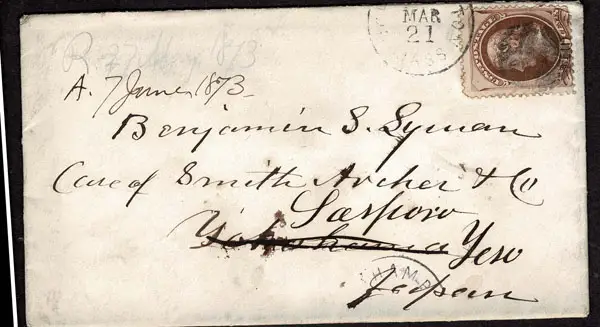 MAR
21
MASS
R. 27 May 1873
A. 7 June 1873.
Benjamin S. Lyman
Care of Smith Archer & Co
Sasporo
Yokohama Yeso
HAM
Japan